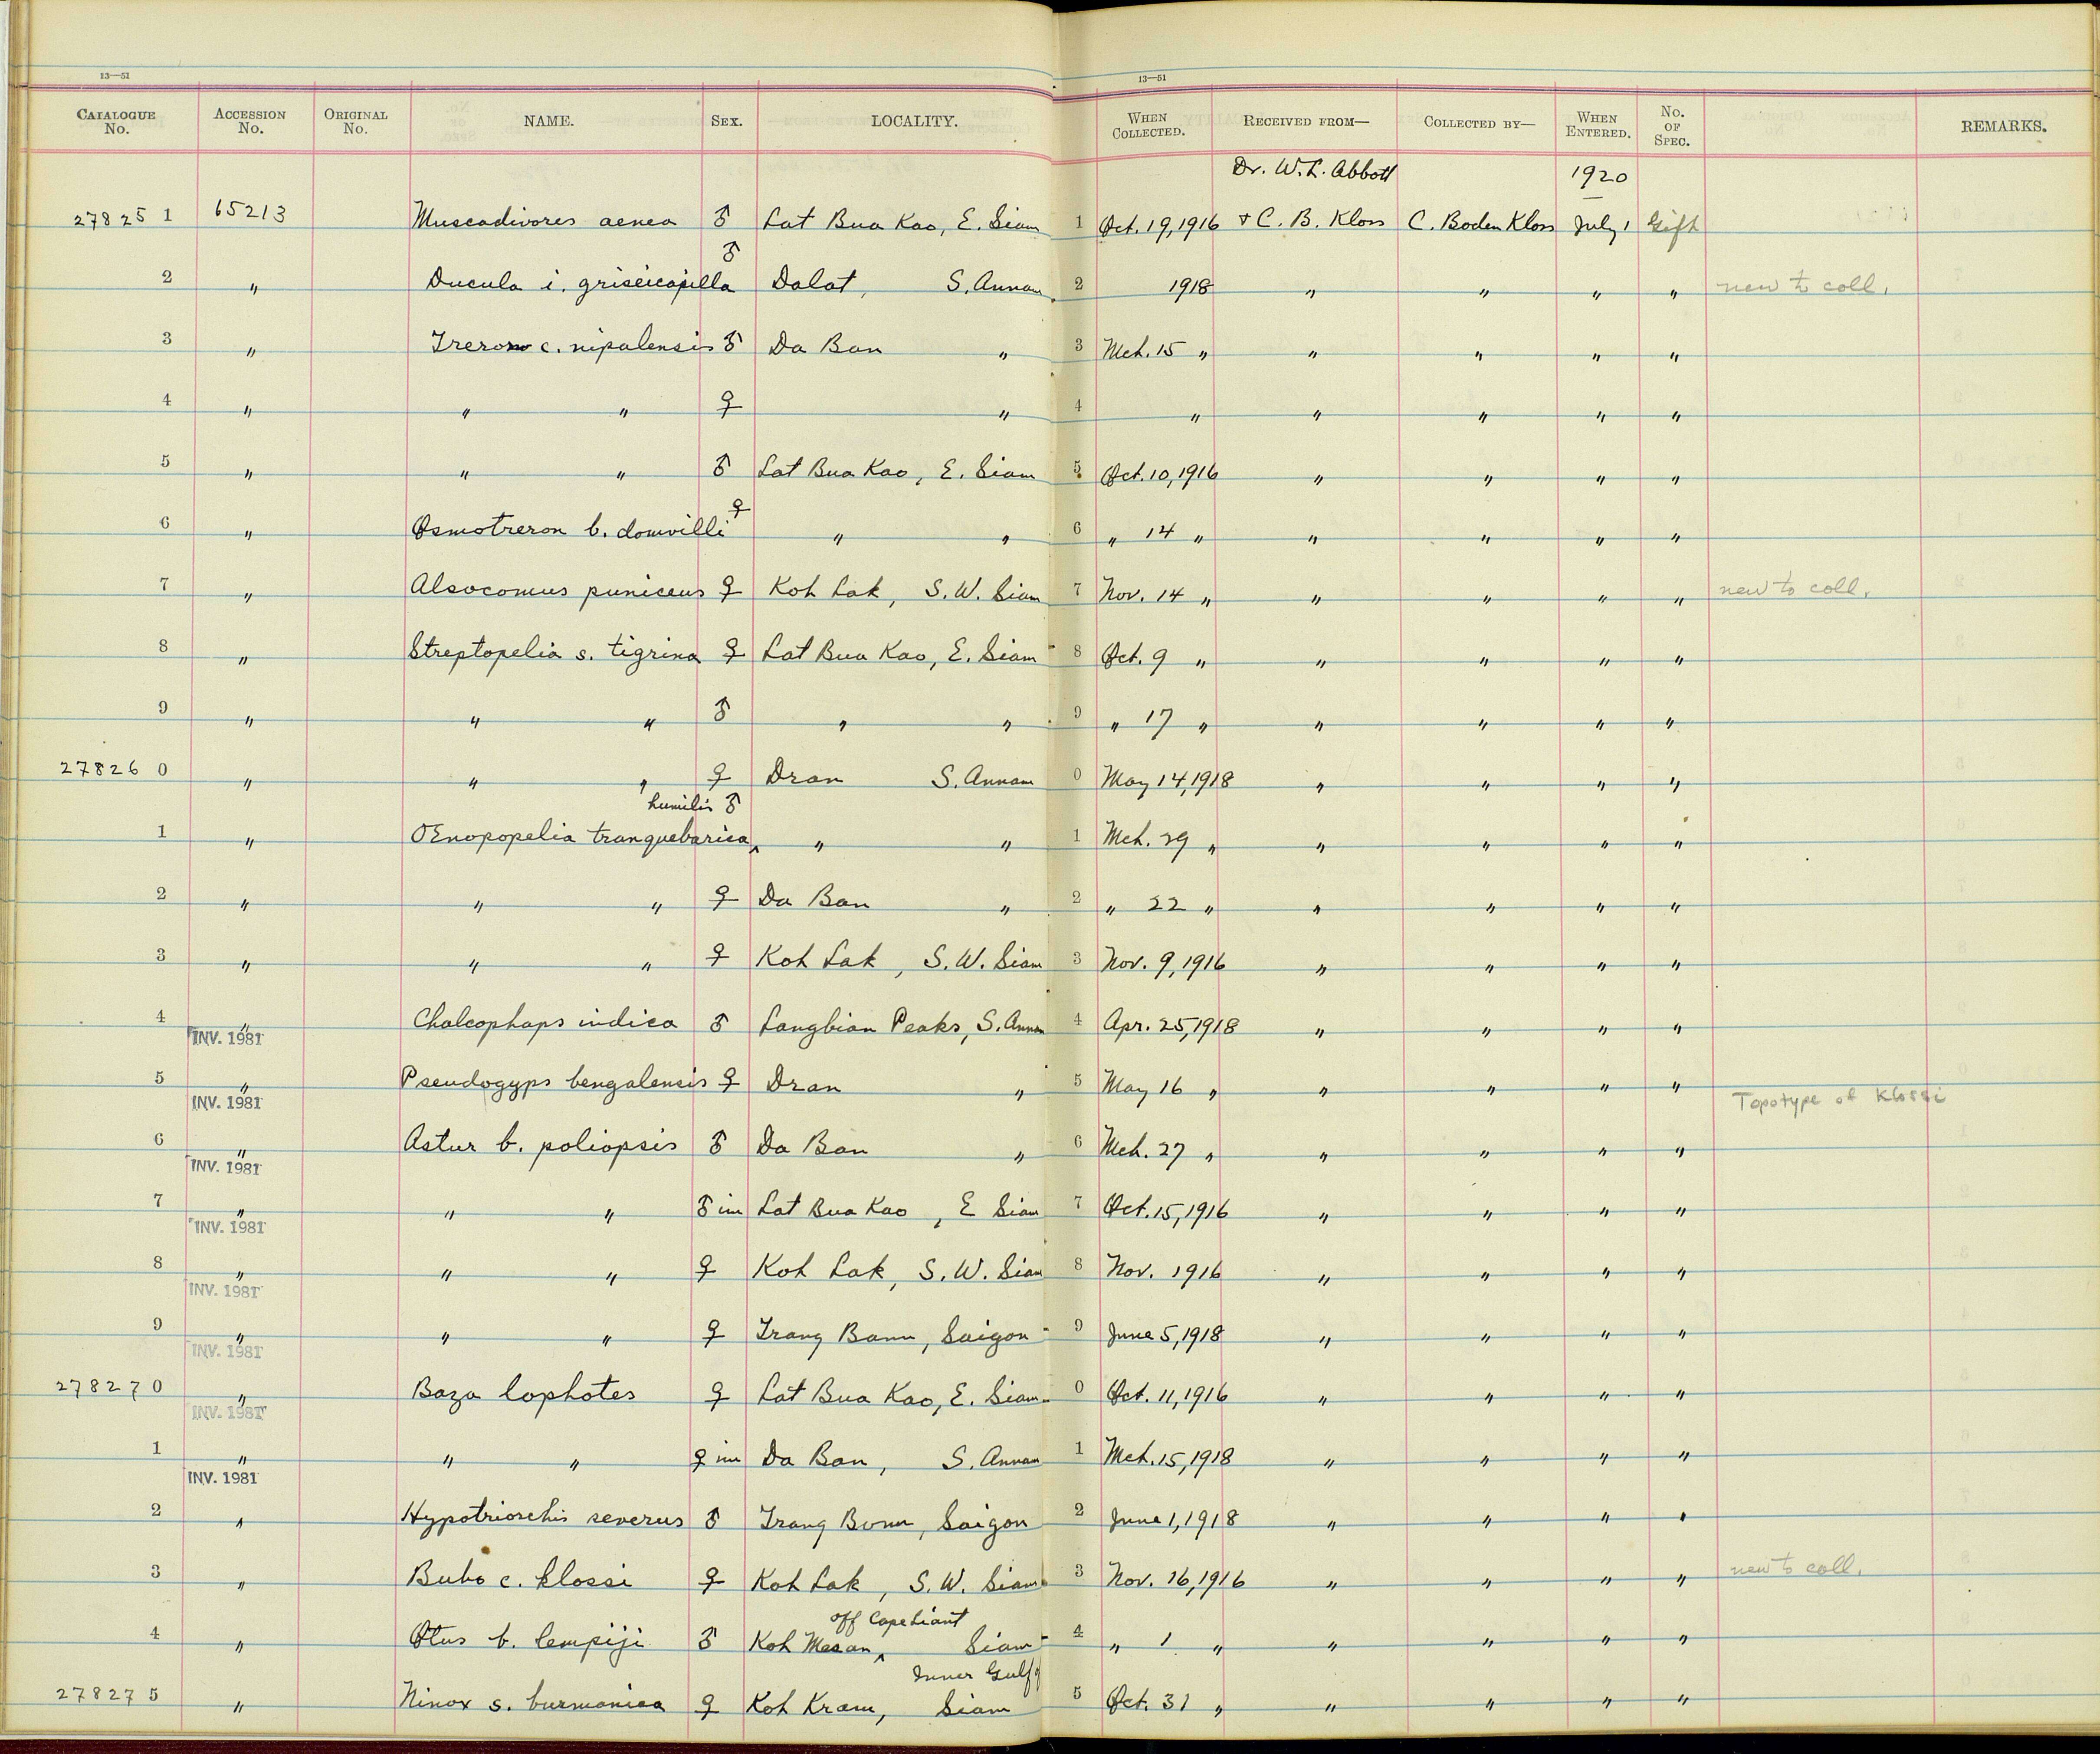 13—51 13—51
CATALOGUE No. ACCESSION No. ORIGINAL No. NAME. SEX. LOCALITY. WHEN COLLECTED. RECEIVED FROM— COLLECTED BY— WHEN ENTERED. No. OF SPEC. REMARKS.
Dr. W. L. Abbott 1920
27825 1 65213 Muscadivores aenea ♂ Lat Bua Kao, E. Siam 1 Oct. 19, 1916 + C. B. Kloss C. Boden Kloss July 1 Gift
2 " Ducula i. griseicapilla ♂ Dalat, S. Annam 2 1918 " " " " new to coll.
3 " Treron c. nipalensis ♂ Da Ban " 3 Mch. 15 " " " " "
4 " " " ♀ " 4 " " " " "
5 " " " ♂ Lat Bua Kao, E. Siam 5 Oct. 10, 1916 " " " "
6 " Osmotreron b. domvilli ♀ " " 6 " 14 " " " " "
7 " Alsocomus puniceus ♀ Koh Lak, S. W. Siam 7 Nov. 14 " " " " " new to coll.
8 " Streptopelia s. tigrina ♀ Lat Bua Kao, E. Siam 8 Oct. 9 " " " " "
9 " " " ♂ " " 9 " 17 " " " " "
27826 0 " " " ♀ Dran S. Annam 0 May 14, 1918 " " " "
humilis ♂
1 " Œnopopelia tranquebarica ^ " " 1 Mch. 29 " " " " "
2 " " " ♀ Da Ban " 2 " 22 " " " " "
3 " " " ♀ Koh Lak, S. W. Siam 3 Nov. 9, 1916 " " " "
4 " Chalcophaps indica ♂ Langbian Peaks, S. Annam 4 Apr. 25, 1918 " " " "
INV. 1981
5 " Pseudogyps bengalensis ♀ Dran " 5 May 16 " " " " "
INV. 1981 Topotype of Klossi
6 " Astur b. poliopsis ♂ Da Ban " 6 Mch. 27 " " " " "
INV. 1981
7 " " " ♂ im Lat Bua Kao, E Siam 7 Oct. 15, 1916 " " " "
INV. 1981
8 " " " ♀ Koh Lak, S. W. Siam 8 Nov. 1916 " " " "
INV. 1981
9 " " " ♀ Trang Bom, Saigon 9 June 5, 1918 " " " "
INV. 1981
27827 0 " Baza lophotes ♀ Lat Bua Kao, E. Siam 0 Oct. 11, 1916 " " " "
INV. 1981
1 " " " ♀ im Da Ban, S. Annam 1 Mch. 15, 1918 " " " "
INV. 1981
2 " Hypotriorchis severus ♂ Trang Bom, Saigon 2 June 1, 1918 " " " "
3 " Bubo c. klossi ♀ Koh Lak, S. W. Siam 3 Nov. 16, 1916 " " " " new to coll.
off Cape Liant
4 " Otus b. lempiji ♂ Koh Mesan, ^ Siam 4 " 1 " " " " "
Inner Gulf
27827 5 " Ninox s. burmanica ♀ Koh Kram, Siam 5 Oct. 31 " " " " "